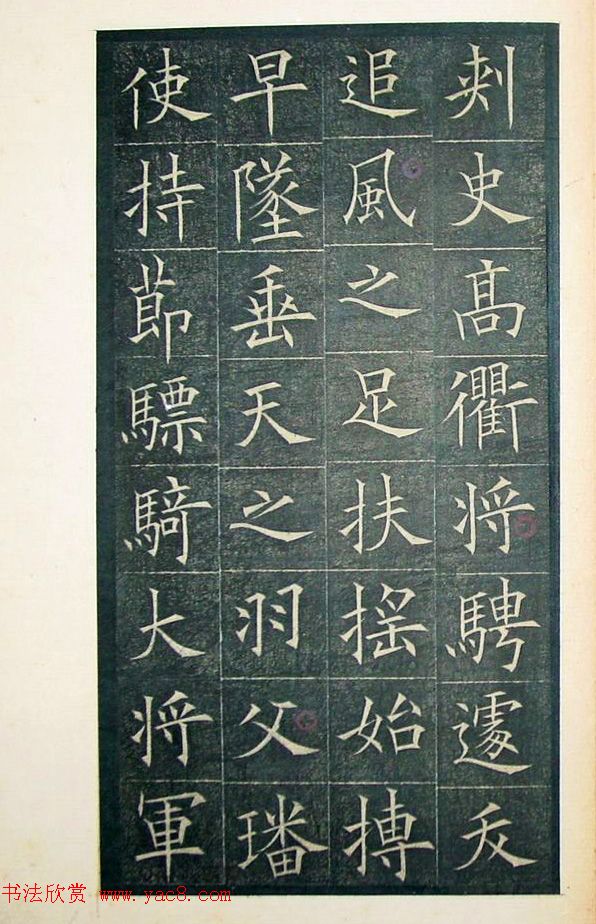 刾史髙衢将騁遽夭
追風之足扶揺始摶
早墜垂天之羽父璠
使持節驃騎大将軍
书法欣赏 www.yac8.com